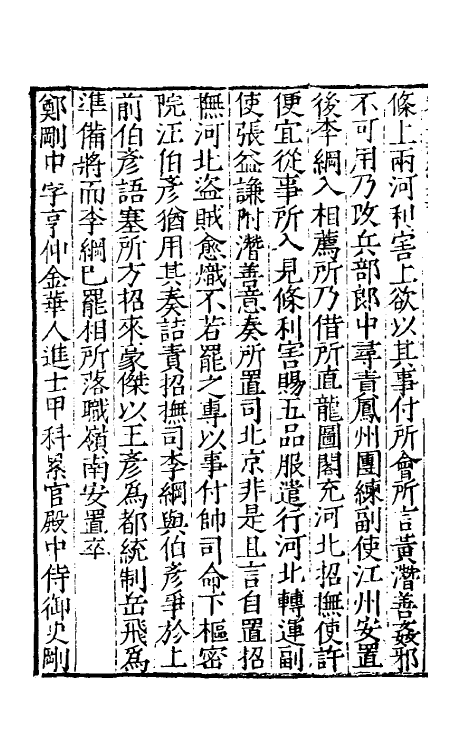 條上兩河利害上欲以其事付所會所言黃潛善姦邪
不可用乃改兵部郎中尋責鳳州團練副使江州安置
後李綱入相薦所乃借所直龍圖閣充河北招撫使許
便宜從事所入見條利害賜五品服遣行河北轉運副
使張益謙附潛善意奏所置司北京非是且言自置招
撫河北盜賊愈熾不若罷之專以事付帥司命下樞密
院汪伯彥猶用其奏詰責招撫司李綱與伯彥爭於上
前伯彥語塞所方招來豪傑以王彥爲都統制岳飛爲
準備將而李綱已罷相所落職嶺南安置卒
鄭剛中字亨仲金華人進士甲科累官殿中侍御史剛